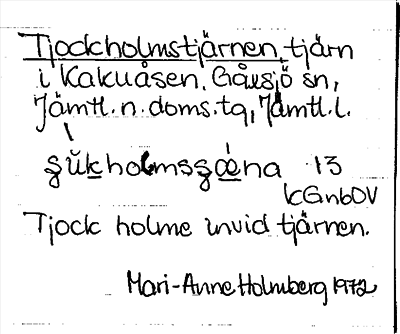 Tjockholmstjärnen, tjärn
i Kakuåsen, Gåxsjö sn,
Jämtl. n. doms. tg, Jämtl. l.
şŭkholmsşǽna 13
kGnbDV
Tjock holme invid tjärnen.
Mari-Anne Holmberg 1972